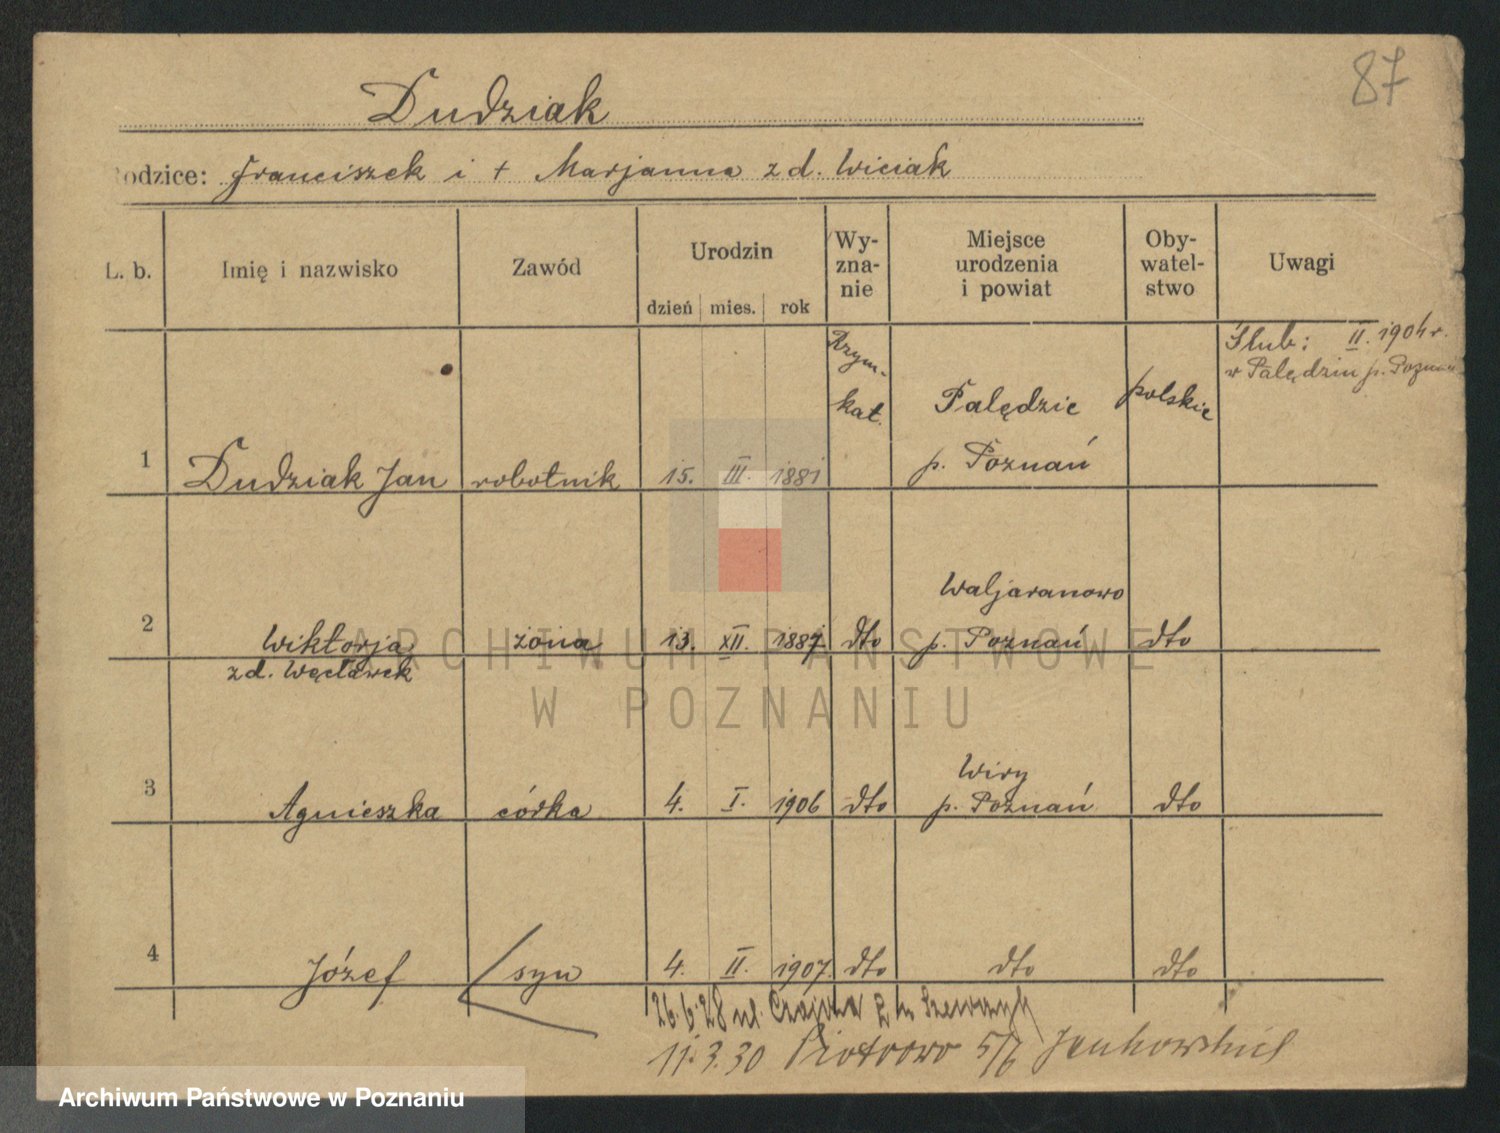 87
Dudziak
odzice: Franciszek i + Marjanna z d. Wiciak
L. b. Imię i nazwisko Zawód Urodzin dzień mies. rok Wy-zna-nie Miejsce urodzenia i powiat Oby-watel-stwo Uwagi
Ślub: II. 1904 r.
w Palędziu p. Poznań
1 Dudziak Jan robotnik 15. III. 1881 Rzym.-kat. Palędzie p. Poznań polskie
2 Wiktorja z d. Węcławek żona 13. XII. 1887 dto p. Poznań dto
3 Agnieszka córka 4. I. 1906 dto Wiry p. Poznań dto
4 Józef syn 4. II. 1907. dto dto dto
26.6.28 ul. Czajcza
11.3.30 Piotrowo 5/6
ARCHIWUM PAŃSTWOWE
W POZNANIU
Archiwum Państwowe w Poznaniu